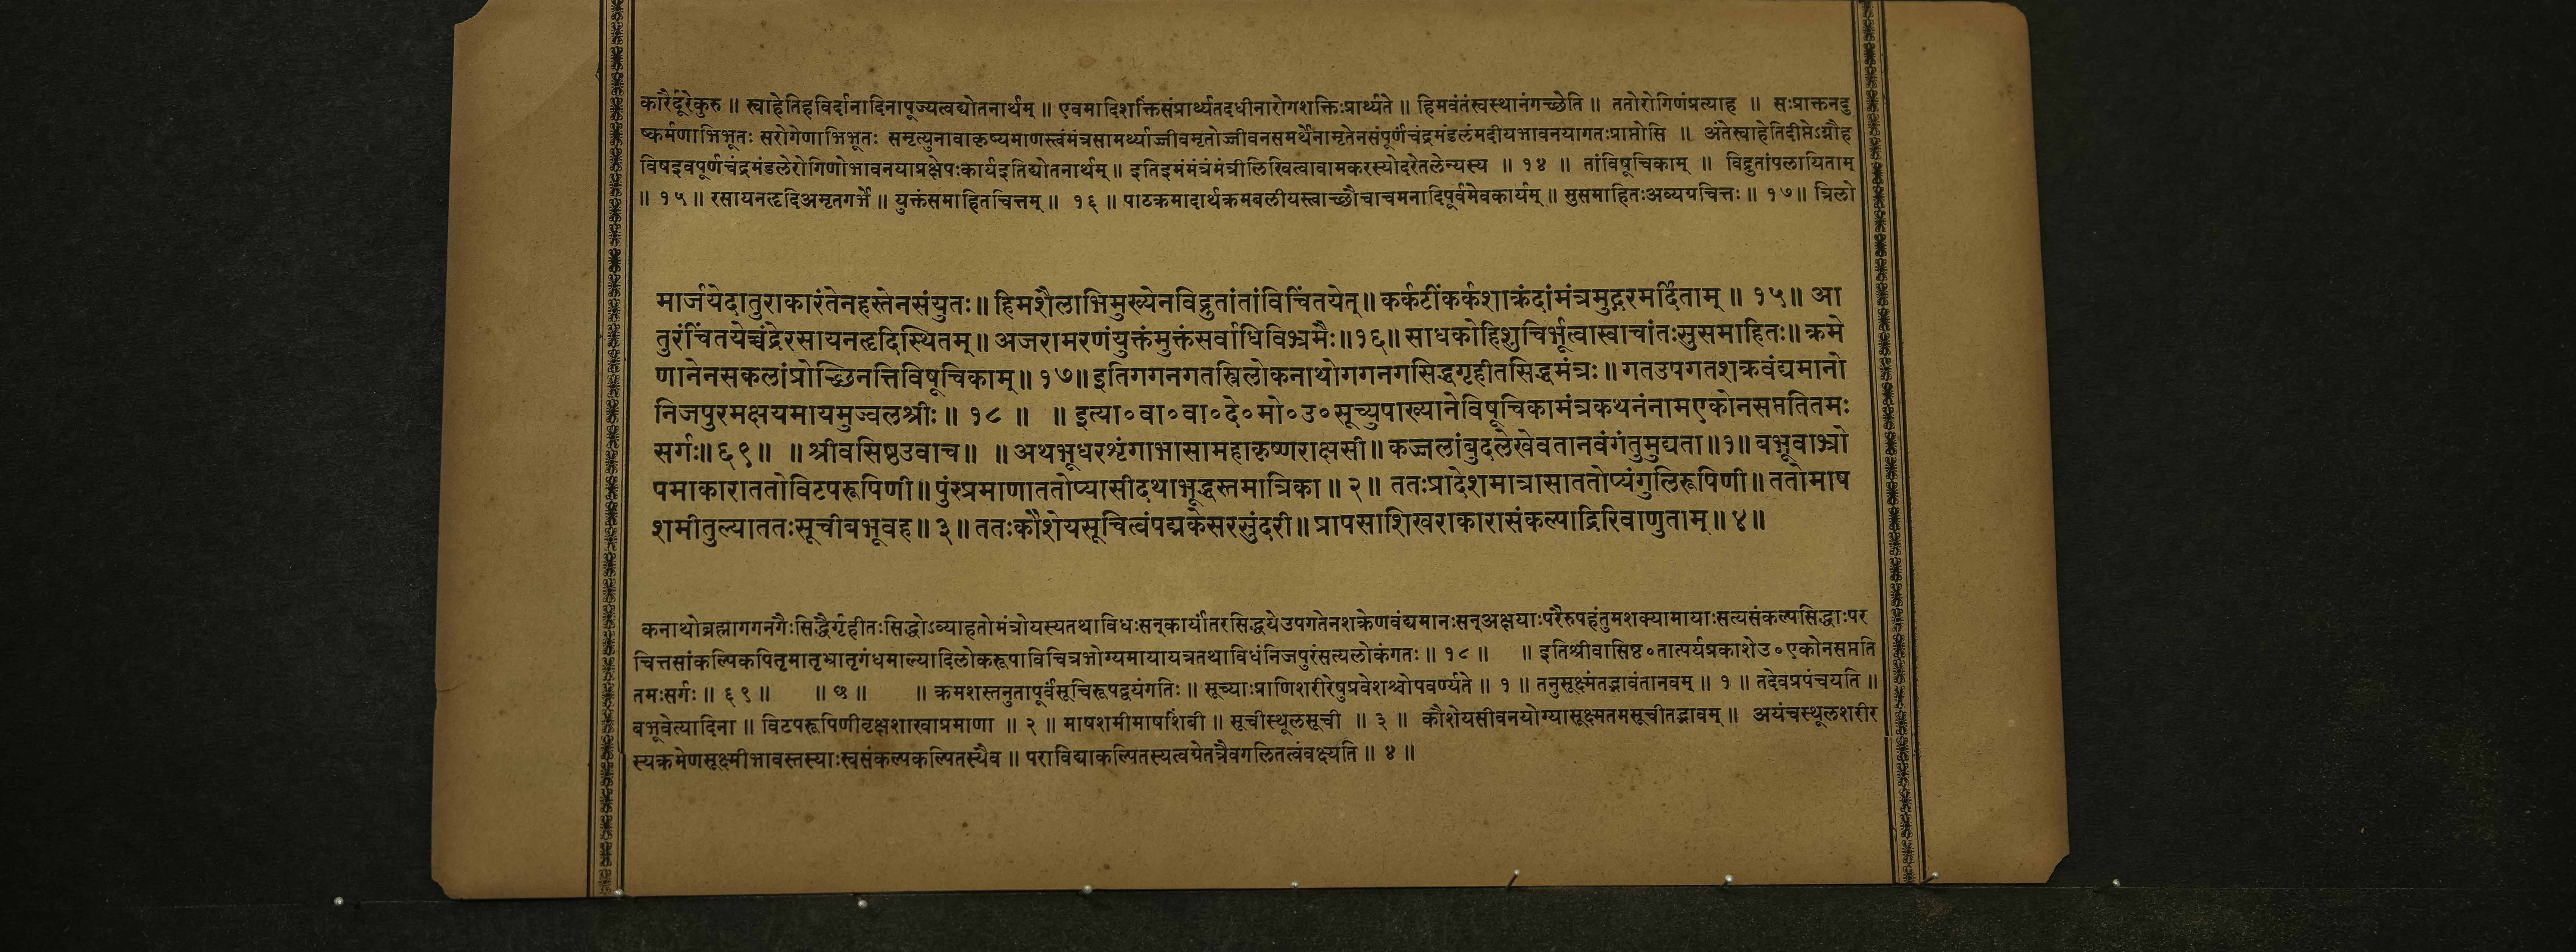 कारैर्दूरेकुरु ॥ स्वाहेतिहविर्दानादिनापूज्यत्वद्योतनार्थम् ॥ एवमादिशक्तिंसंप्रार्थ्यतदधीनारोगशक्तिःप्रार्थ्यते ॥ हिमवंतंस्वस्थानंगच्छेति ॥ ततोरोगिणंप्रत्याह ॥ सःप्राक्तनदु
ष्कर्मणाभिभूतः सरोगेणाभिभूतः समृत्युनावाकृष्यमाणस्त्वंमंत्रसामर्थ्याज्जीवमृतोज्जीवनसमर्थेनामृतेनसंपूर्णचंद्रमंडलंमदीयभावनयागतःप्राप्तोसि ॥ अंतेस्वाहेतिदीप्तेऽग्नौह
विषइवपूर्णचंद्रमंडलेरोगिणोभावनयाप्रक्षेपःकार्यइतिद्योतनार्थम् ॥ इतिइमंमंत्रंमंत्रीलिखित्वावामकरस्योदरेतलेन्यस्य ॥ १४ ॥ तांविषूचिकाम् ॥ विद्रुतांपलायिताम्
॥ १५ ॥ रसायनहृदिअमृतगर्भे ॥ युक्तंसमाहितचित्तम् ॥ १६ ॥ पाठक्रमादार्थक्रमबलीयस्त्वाच्छौचाचमनादिपूर्वमेवकार्यम् ॥ सुसमाहितःअव्यग्रचित्तः ॥ १७ ॥ त्रिलो
मार्जयेदातुराकारंतेनहस्तेनसंयुतः ॥ हिमशैलाभिमुख्येनविद्रुतांतांविचिंतयेत् ॥ कर्कटींकर्कशाक्रंदांमंत्रमुद्गरमर्दिताम् ॥ १५ ॥ आ
तुरंचिंतयेच्चंद्रेरसायनहृदिस्थितम् ॥ अजरामरणंयुक्तंमुक्तंसर्वाधिविभ्रमैः ॥ १६ ॥ साधकोहिशुचिर्भूत्वास्वाचांतःसुसमाहितः ॥ क्रमे
णानेनसकलांप्रोच्छिनत्तिविषूचिकाम् ॥ १७ ॥ इतिगगनगतस्त्रिलोकनाथोगगनगसिद्धगृहीतसिद्धमंत्रः ॥ गतउपगतशक्रवंद्यमानो
निजपुरमक्षयमायमुज्वलश्रीः ॥ १८ ॥ ॥ इत्या॰वा॰वा॰दे॰मो॰उ॰सूच्युपाख्यानेविषूचिकामंत्रकथनंनामएकोनसप्ततितमः
सर्गः ॥ ६९ ॥ ॥ श्रीवसिष्ठउवाच ॥ ॥ अथभूधरशृंगाभासामहाकृष्णराक्षसी ॥ कज्जलांबुदलेखेवतानवंगंतुमुद्यता ॥ १ ॥ बभूवाभ्रो
पमाकाराततोविटपरूपिणी ॥ पुंस्प्रमाणाततोप्यासीदथाभूद्धस्तमात्रिका ॥ २ ॥ ततःप्रादेशमात्रासाततोप्यंगुलिरूपिणी ॥ ततोमाष
शमीतुल्याततःसूचीबभूवह ॥ ३ ॥ ततःकौशेयसूचित्वंपद्मकेसरसुंदरी ॥ प्रापसाशिखराकारासंकल्पाद्रिरिवाणुताम् ॥ ४ ॥
कनाथोब्रह्मागगनगैःसिद्धैर्गृहीतःसिद्धोऽव्याहतोमंत्रोयस्यतथाविधःसन्कार्यांतरसिद्धयेउपगतेनशक्रेणवंद्यमानःसन्अक्षयाःपरैरुपहंतुमशक्यामायाःसत्यसंकल्पसिद्धाःपर
चित्तसांकल्पिकपितृमातृभ्रातृगंधमाल्यादिलोकरूपाविचित्रभोग्यमायायत्रतथाविधंनिजपुरंसत्यलोकंगतः ॥ १८ ॥ ॥ इतिश्रीवासिष्ठ॰तात्पर्यप्रकाशेउ॰एकोनसप्तति
तमःसर्गः ॥ ६९ ॥ ॥ ७ ॥ ॥ क्रमशस्तनुतापूर्वंसूचिरूपद्वयंगतिः ॥ सूच्याःप्राणिशरीरेषुप्रवेशश्चोपवर्ण्यते ॥ १ ॥ तनुसूक्ष्मंतद्भावंतानवम् ॥ १ ॥ तदेवप्रपंचयति ॥
बभूवेत्यादिना ॥ विटपरूपिणीवृक्षशाखाप्रमाणा ॥ २ ॥ माषशमीमाषशिंबी ॥ सूचीस्थूलसूची ॥ ३ ॥ कौशेयसीवनयोग्यासूक्ष्मतमसूचीतद्भावम् ॥ अयंचस्थूलशरीर
स्यक्रमेणसूक्ष्मीभावस्तस्याःस्वसंकल्पकल्पितस्यैव ॥ पराविद्याकल्पितस्यत्वग्रेतत्रैवगलितत्वंवक्ष्यति ॥ ४ ॥